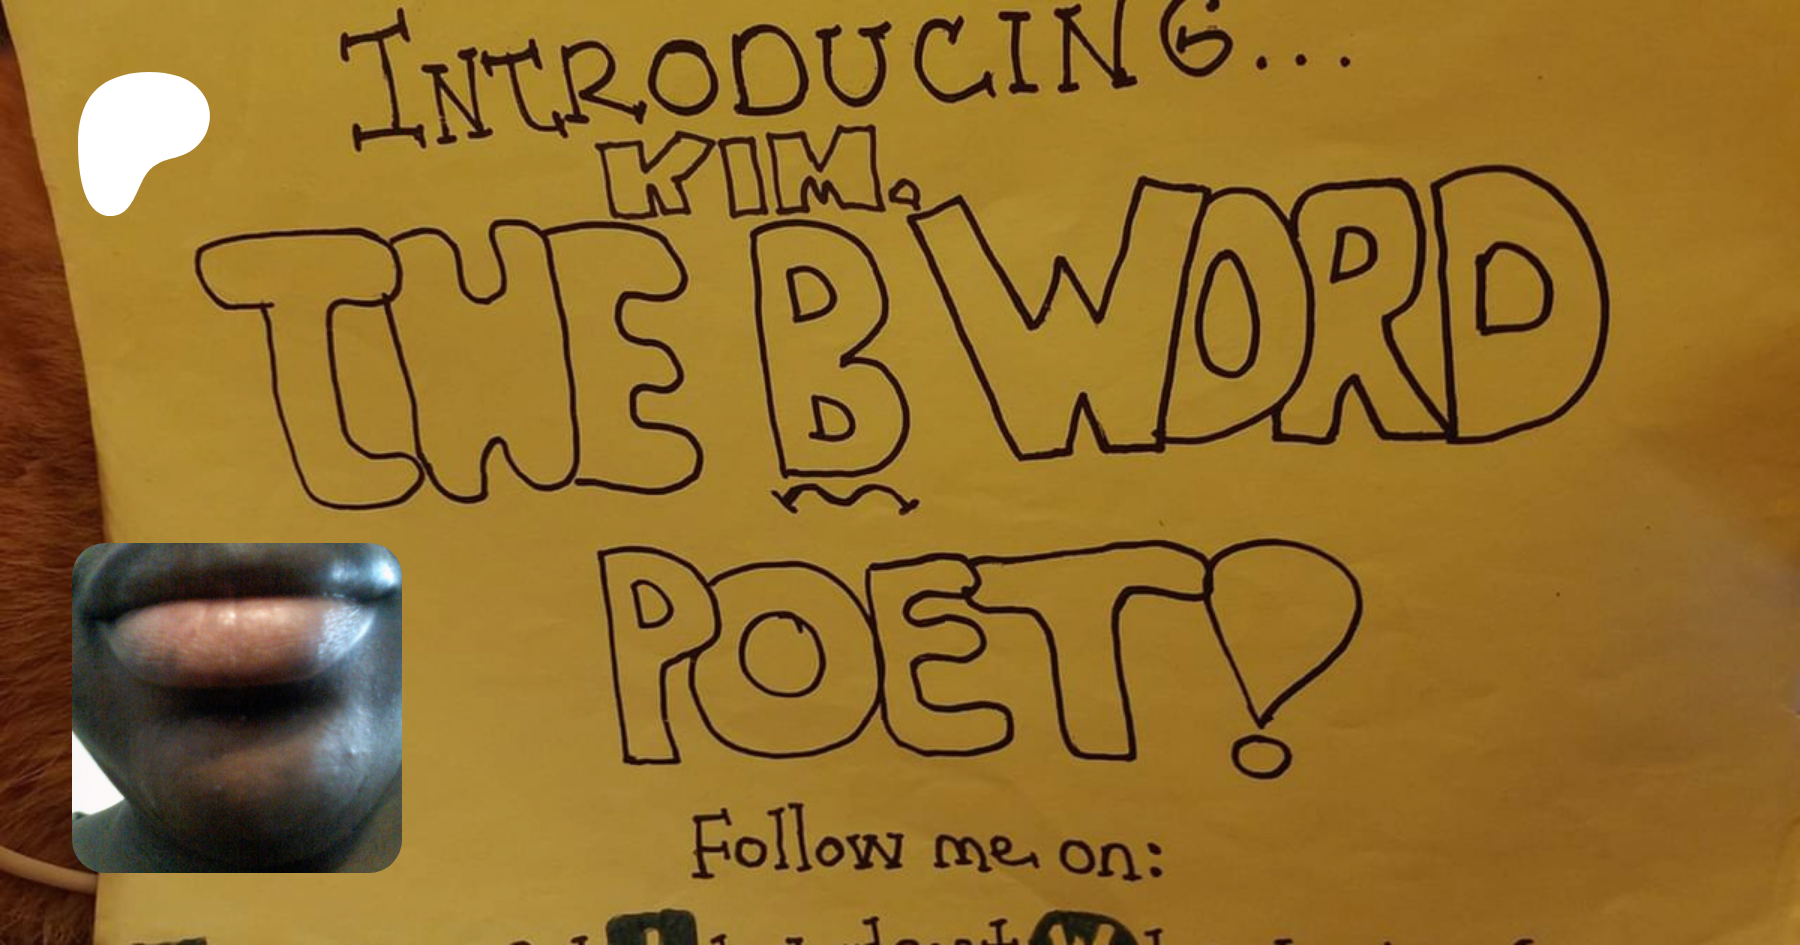 INTRODUCING...
KIM.
THE B WORD
POET!
Follow me on: